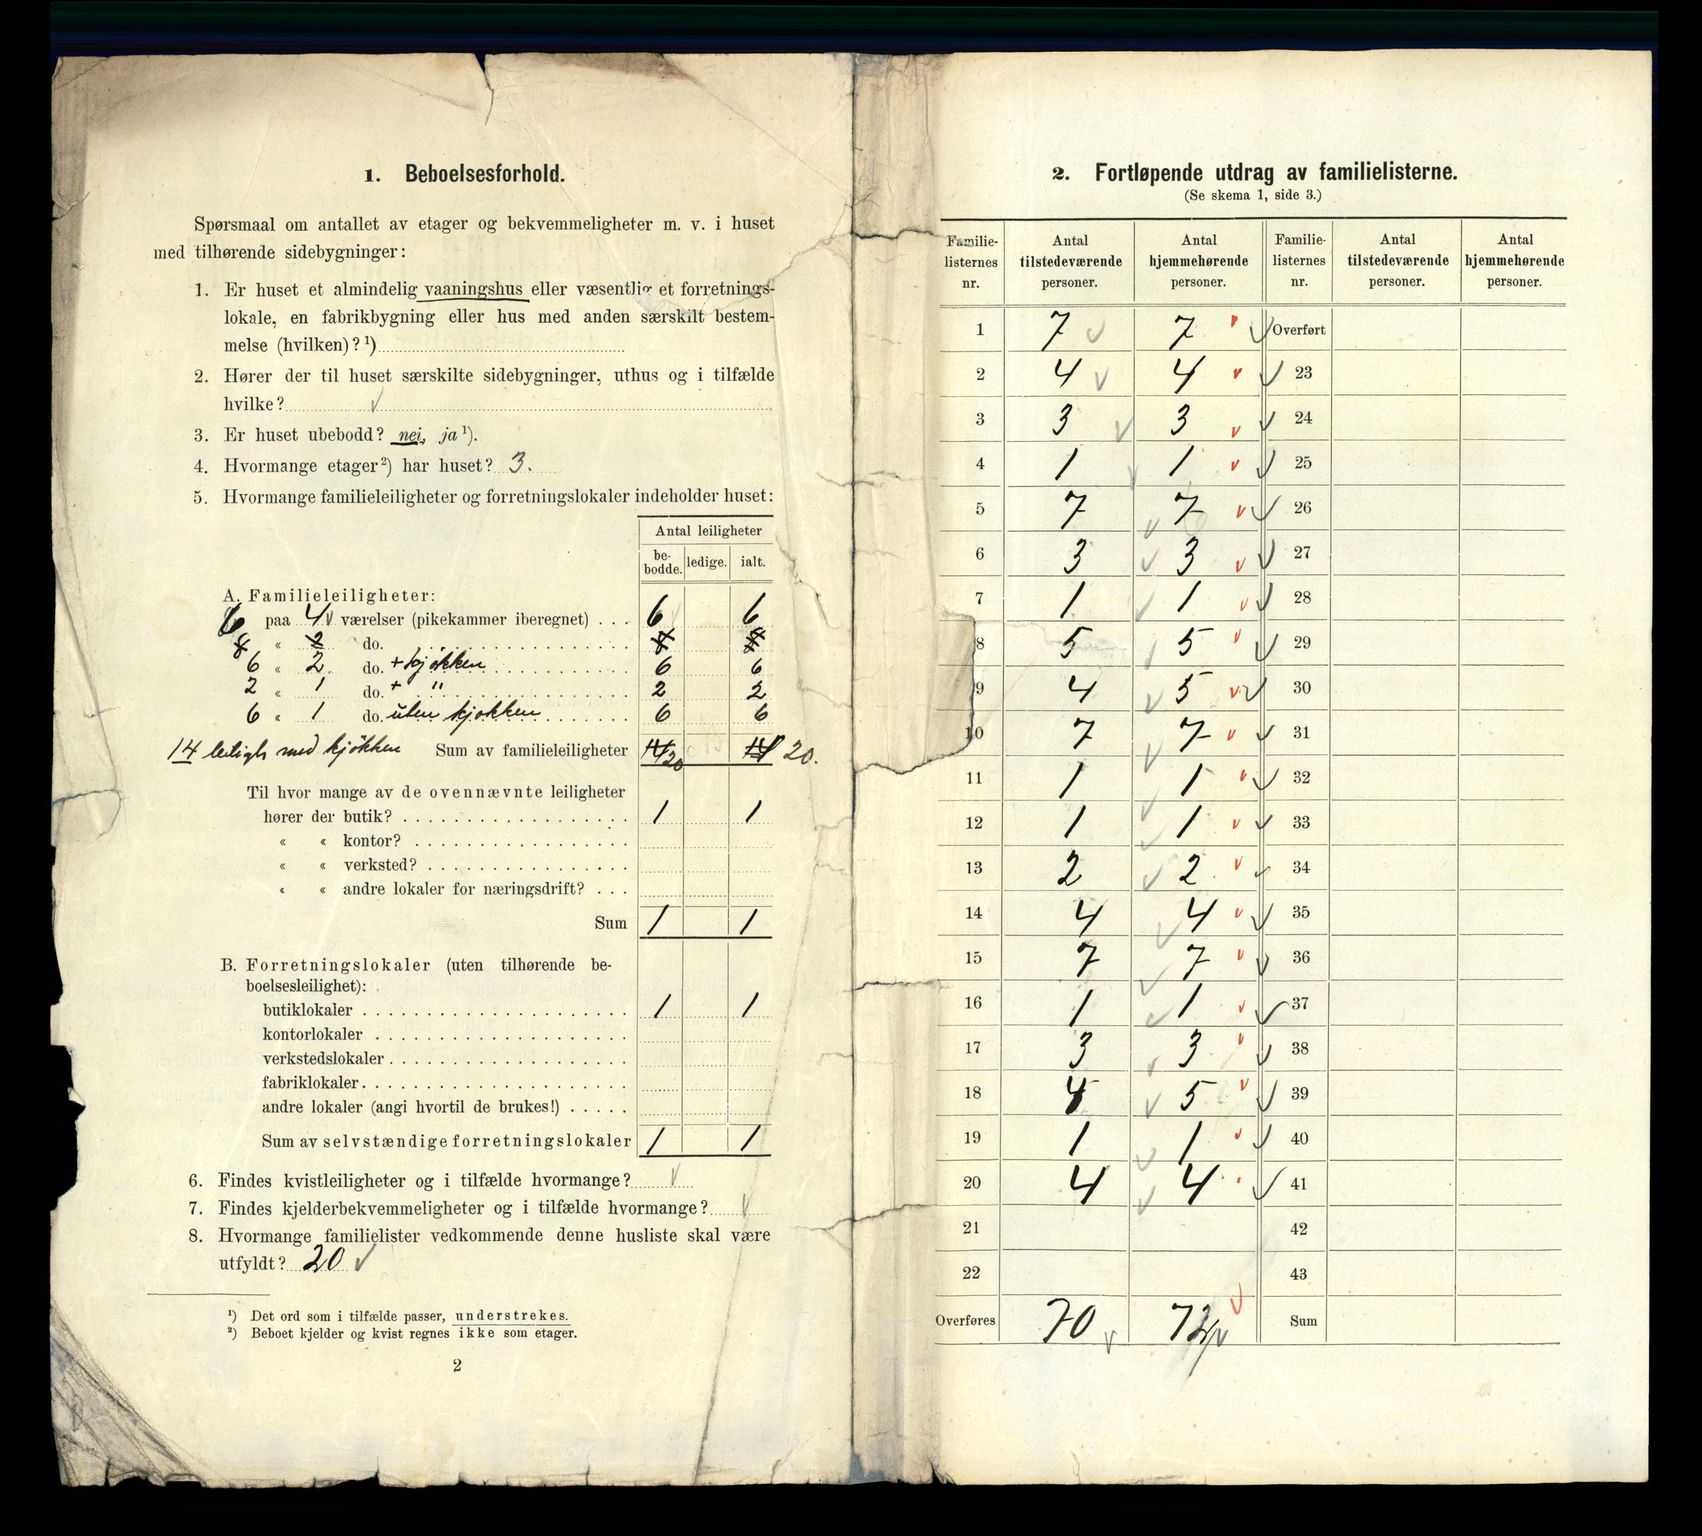 1. Beboelsesforhold.
Spørsmaal om antallet av etager og bekvemmeligheter m. v. i huset
med tilhørende sidebygninger:
1. Er huset et almindelig vaaningshus eller væsentlig et forretnings-
lokale, en fabrikbygning eller hus med anden særskilt bestem-
melse (hvilken)?¹)
2. Hører der til huset særskilte sidebygninger, uthus og i tilfælde
hvilke?
3. Er huset ubebodd? nei, ja¹).
4. Hvormange etager²) har huset? 3.
5. Hvormange familieleiligheter og forretningslokaler indeholder huset:
Antal leiligheter
be-bodde. ledige. ialt.
A. Familieleiligheter:
6 paa 4 værelser (pikekammer iberegnet) . . . 6 6
8 « 2 do. 8 8
6 « 2 do. + kjøkken 6 6
2 « 1 do. + " 2 2
6 « 1 do. uten kjøkken 6 6
14 leiligh med kjøkken Sum av familieleiligheter 14 20 14 20.
Til hvor mange av de ovennævnte leiligheter
hører der butik? 1 1
« « kontor?
« « verksted?
« « andre lokaler for næringsdrift? . . .
Sum 1 1
B. Forretningslokaler (uten tilhørende be-
boelsesleilighet):
butiklokaler 1 1
kontorlokaler
verkstedslokaler
fabriklokaler
andre lokaler (angi hvortil de brukes!)
Sum av selvstændige forretningslokaler 1 1
6. Findes kvistleiligheter og i tilfælde hvormange?
7. Findes kjelderbekvemmeligheter og i tilfælde hvormange?
8. Hvormange familielister vedkommende denne husliste skal være
utfyldt? 20
¹) Det ord som i tilfælde passer, understrekes.
²) Beboet kjelder og kvist regnes ikke som etager.
2
2. Fortløpende utdrag av familielisterne.
(Se skema 1, side 3.)
Familie-listernes nr. Antal tilstedeværende personer. Antal hjemmehørende personer. Familie-listernes nr. Antal tilstedeværende personer. Antal hjemmehørende personer.
1 7 7 Overført
2 4 4 23
3 3 3 24
4 1 1 25
5 7 7 26
6 3 3 27
7 1 1 28
8 5 5 29
9 4 5 30
10 7 7 31
11 1 1 32
12 1 1 33
13 2 2 34
14 4 4 35
15 7 7 36
16 1 1 37
17 3 3 38
18 4 5 39
19 1 1 40
20 4 4 41
21 42
22 43
Overføres 70 72 Sum